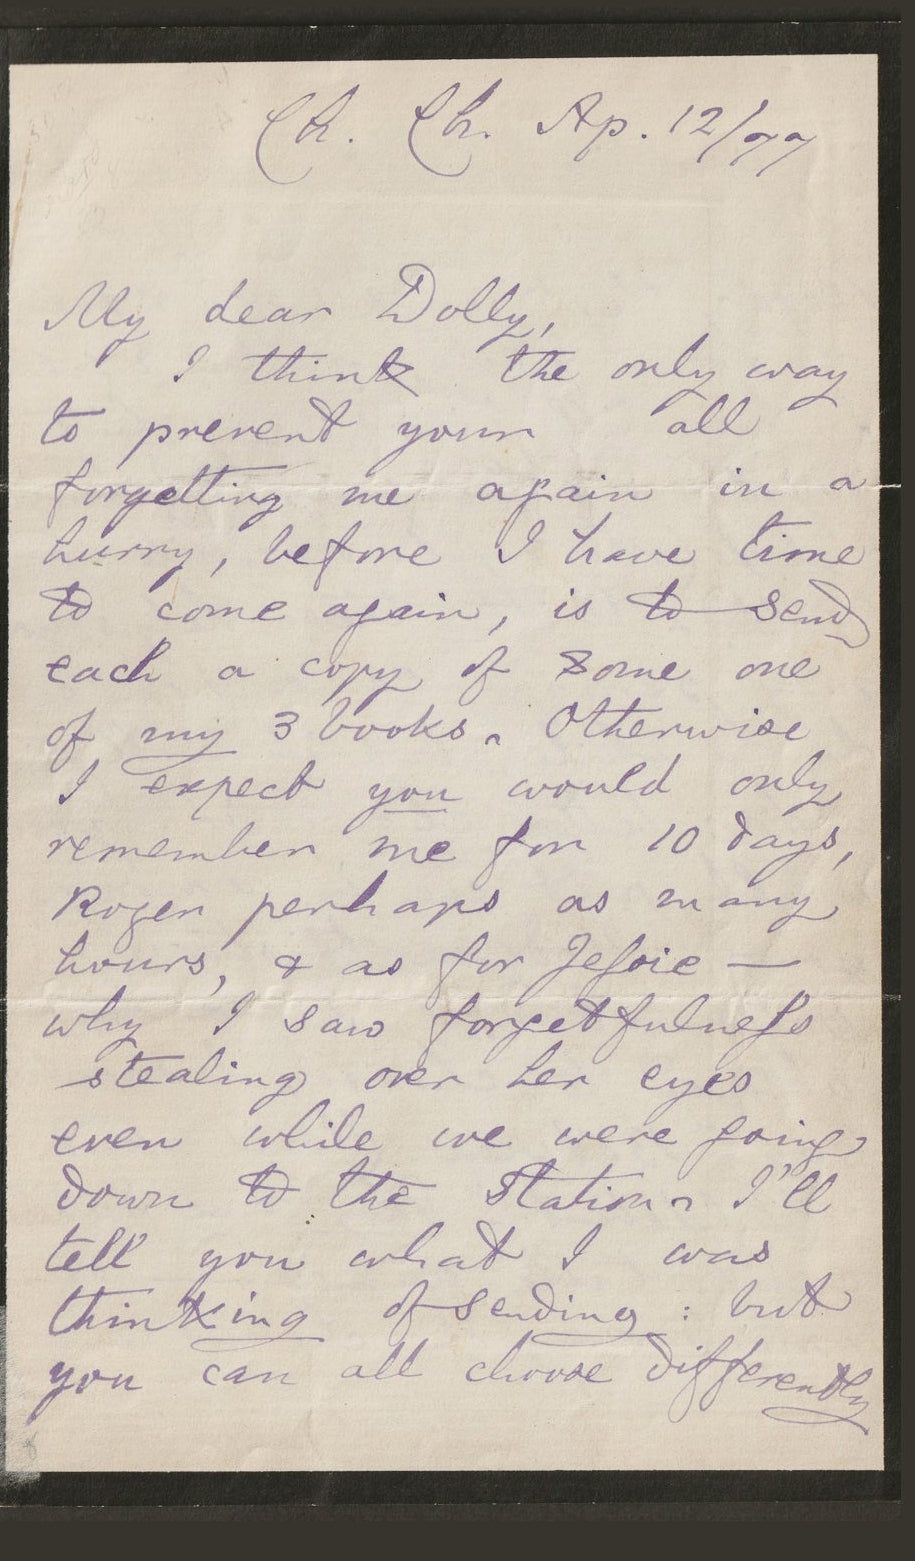 Ch. Ch. Ap. 12/77
My dear Dolly,
I think the only way
to prevent your all
forgetting me again in a
hurry, before I have time
to come again, is to send
each a copy of some one
of my 3 books. Otherwise
I expect you would only
remember me for 10 days,
Roger perhaps as many
hours, & as for Jessie —
why I saw forgetfulness
stealing over her eyes
even while we were going
down to the station. I'll
tell you what I was
thinking of sending: but
you can all choose differently